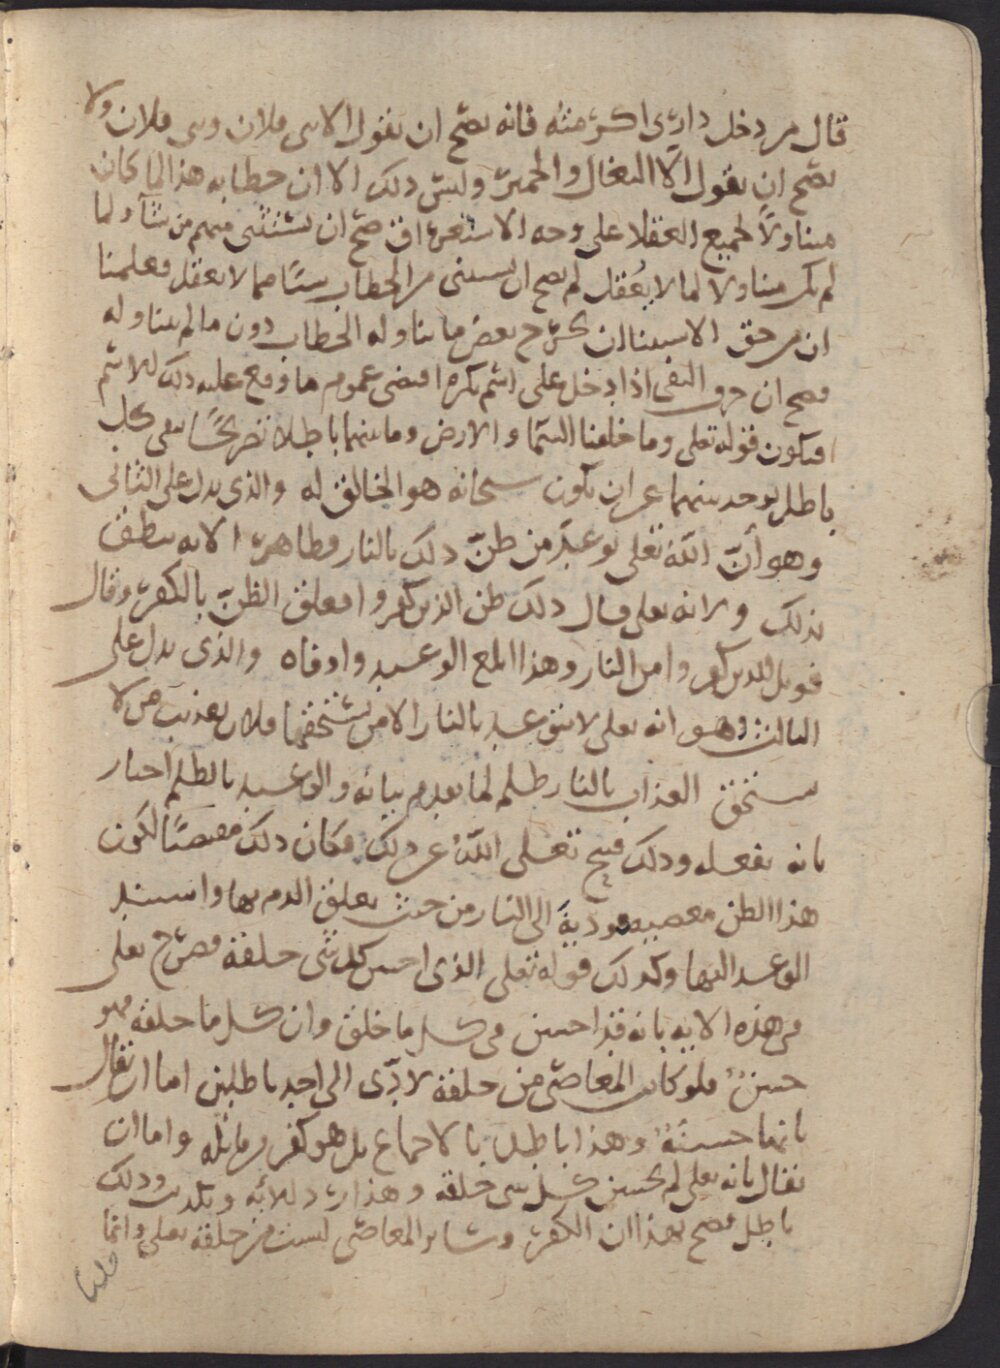 قال من دخل داري اكرمته فانه يصح ان يقول الا بني فلان وبني فلان ولا
يصح ان يقول الا البغال والحمير وليس ذلك الا ان خطابه هذا لما كان
متناولاً لجميع العقلا على وجه الاستغراق صح ان يستثني منهم من شآ ولما
لم يكن متناولا لما لا يعقل لم يصح ان يستثني من الخطاب شيئًا مما لا يعقل فعلمنا
ان من حق الاستثنا ان يخرج بعض ما يتناوله الخطاب دون ما لم يتناوله
فصح ان حرف النفي اذا دخل على اسم نكره اقتضى عموم ما وقع عليه ذلك الاسم
فيكون قوله تعلى وما خلقنا السما والارض وما بينهما باطلا تصريحًا بنفي كل
باطل يوجد بينهما عن ان يكون سبحانه هو الخالق له والذي يدل على الثاني
وهو أنّ الله تعلى توعد من ظنّ ذلك بالنار فظاهر الايه ينطق
بذلك ولانه تعلى قال ذلك ظن الذين كفروا فعلق الظنّ بالكفر وقال
فويل للذين كفروا من النار وهذا ابلغ الوعيد واوفاه والذي يدل على
الثالث وهو انه تعلى لا يتوعد بالنار الا من يستحقها فلان تعذيب من لا
يستحق العذاب بالنار ظلم لما تقدم بيانه والوعيد بالظلم اخبار
بانه يفعله وذلك قبيح تعلى اللهُ عن ذلك فكان ذلك مقتضيًا لكون
هذا الظن معصيه موديةً الى النار من حيث تعلق الذم بها واستند
الوعيد اليها وكذلك قوله تعلى الذي احسن كل شي خلقه فصرح تعلى
في هذه الايه بانه قد احسن في كل ما خلق وان كل ما خلقه فهو
حسنٌ فلو كانت المعاصي من خلقه لادّى الى احد باطلين اما ان يقال
بانها حسنةٌ وهذا باطل بالاجماع بل هو كفر من قائله واما ان
يقال بانه تعلى لم يحسن كل شي خلقه وهذا رد للايه وتكذيب وذلك
باطل فصح بهذا ان الكفر وسائر المعاصي ليست من خلقه تعلى وانما
قلنا